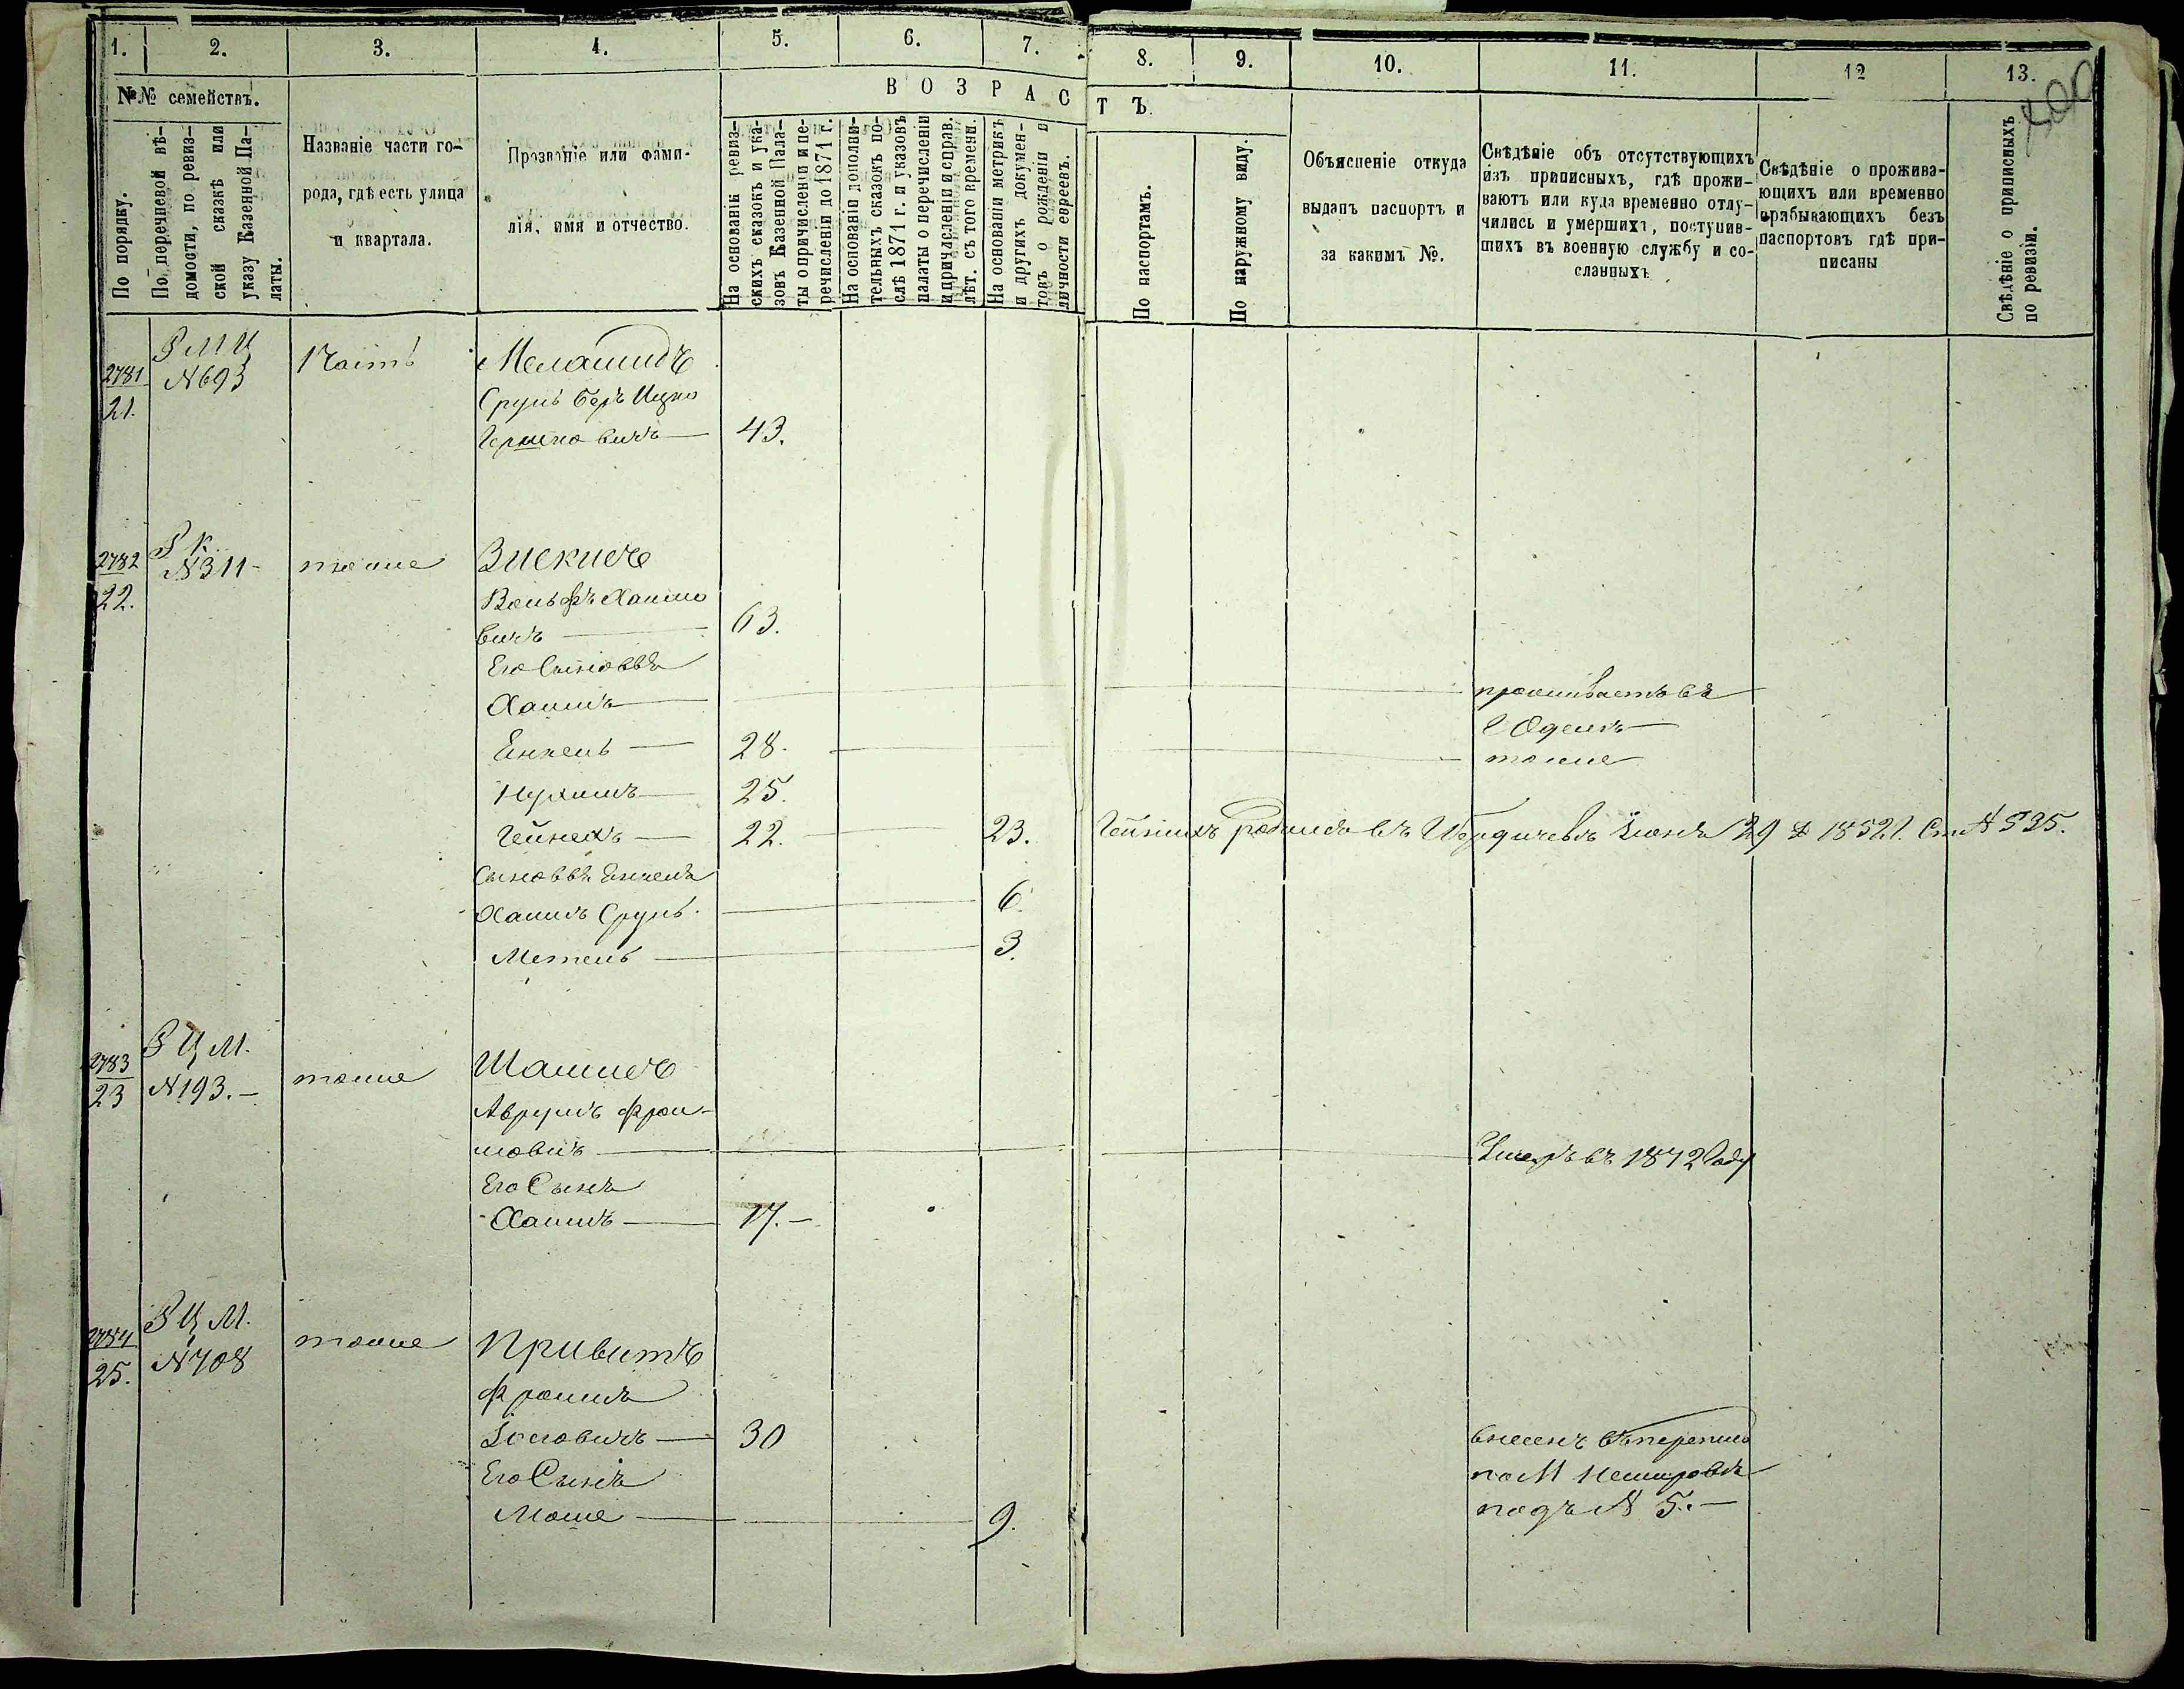 1.
2.
3.
4.
5.
6.
7.
8.
9.
10.
11.
12
13.
№№ семействъ.
По порядку.
По перечневой вѣ-
домости, по ревиз-
ской сказкѣ или
указу Казенной Па-
латы.
Названіе части го-
рода, гдѣ есть улица
и квартала.
Прозваніе или фами-
лія, имя и отчество.
ВОЗРАСТЪ.
На основаніи ревиз-
скихъ сказокъ и ука-
зовъ Казенной Пала-
ты о причисленіи и пе-
речисленіи до 1871 г.
На основаніи дополни-
тельныхъ сказокъ по-
слѣ 1871 г. и указовъ
палаты о перечисленіи
и причисленіи и справ.
лѣт. съ того времени.
На основаніи метрикъ
и другихъ докумен-
товъ о рожденіи и
личности евреевъ.
По паспортамъ.
По наружному виду.
Объясненіе откуда
выданъ паспортъ и
за какимъ №.
Свѣдѣніе объ отсутствующихъ
изъ приписныхъ, гдѣ прожи-
ваютъ или куда временно отлу-
чились и умершихъ, поступив-
шихъ въ военную службу и со-
сланныхъ
Свѣдѣніе о прожива-
ющихъ или временно
прибывающихъ безъ
паспортовъ гдѣ при-
писаны
Свѣдѣніе о приписныхъ
по ревизіи.
2781
21.
№693
1 Часть
Меламидъ
Сруль Беръ Ицко
Гершковичъ 43.
2782
22.
Р К
№311
тоже
Зискинъ
Вольфъ Хаимо
вичъ 63.
Его Сыновья
Хаимъ проживаетъ въ
Г Одессѣ
Енкель 28. тоже
Нухимъ 25.
Гейнехъ 22. 23. Гейнихъ родился въ Бердичевѣ Іюня 29 д 1852 г. Ст № 535.
Сыновья Енкеля
Хаимъ Сруль 6.
Мотель 3.
2783
23
Р Ц М.
№193.
тоже
Шамисъ
Аврумъ Фрои-
мовичъ Умеръ въ 1872 Году
Его Сынъ
Хаимъ 17.
2784
25.
Р Ц М.
№708
тоже
Привитъ
Фроимъ
Іосiовичъ 30 внесенъ въ перепись
по М Немировѣ
Его Сынъ
подъ № 5.
Моше 9.